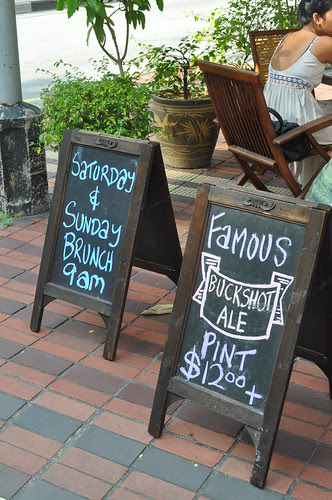 SATURDAY
&
SUNDAY
BRUNCH
9am
FAMOUS
BUCKSHOT
ALE
PINT
$12.00+